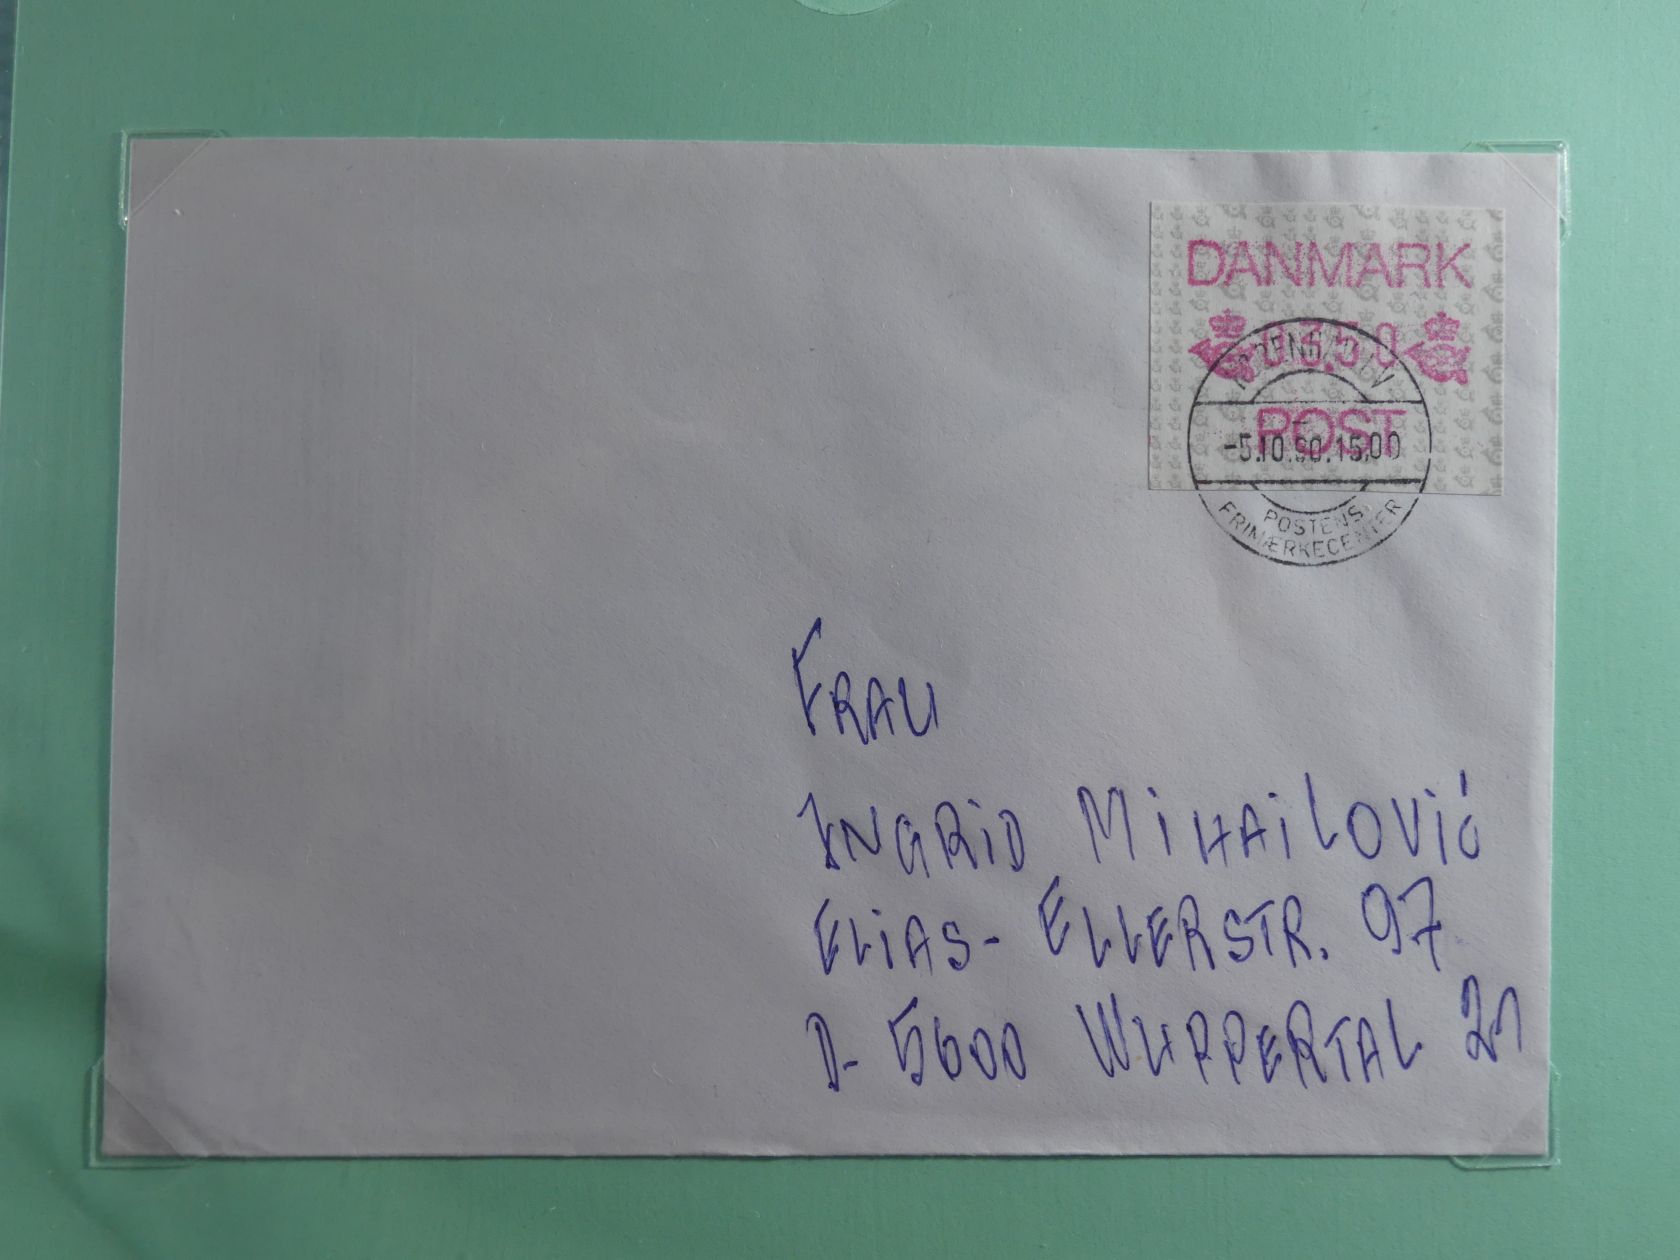 DANMARK
0350
POST
KØBENHAVN V
-5.10.90.15.00
POSTENS
FRIMÆRKECENTER
FRAU
INGRID MIHAILOVIĆ
ELIAS-ELLERSTR. 97
D-5600 WUPPERTAL 21